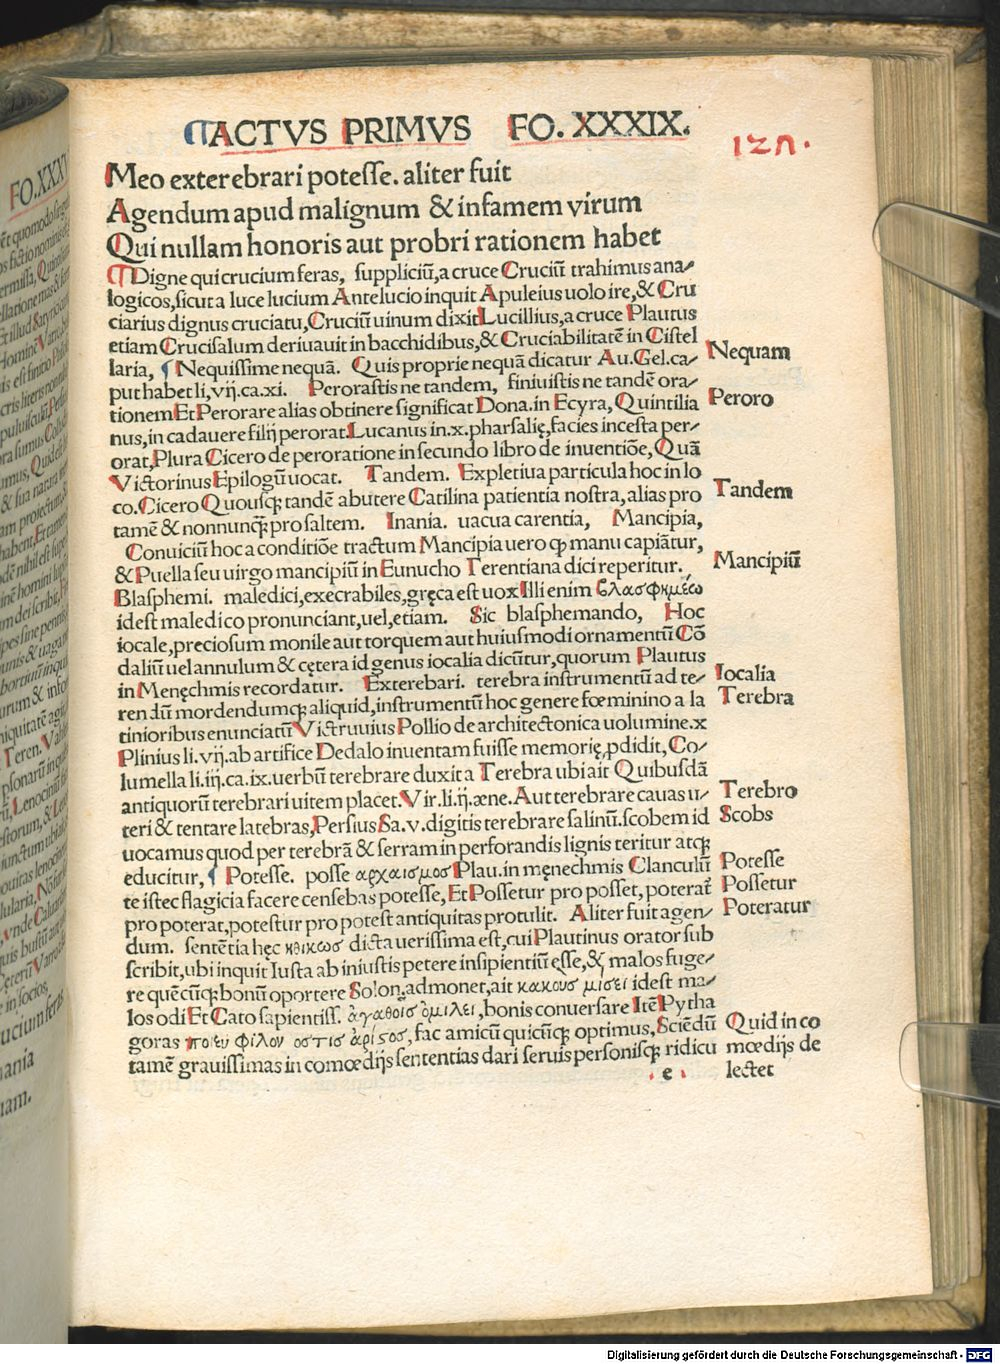 ACTVS PRIMVS FO. XXXIX.
Meo exterebrari potesse. aliter fuit
Agendum apud malignum & infamem virum
Qui nullam honoris aut probri rationem habet
Digne qui crucium feras, suppliciũ, a cruce Cruciũ trahimus ana/
logicos, sicut a luce lucium Antelucio inquit Apuleius uolo ire, & Cru
ciarius dignus cruciatu, Cruciũ uinum dixit Lucillius, a cruce Plautus
etiam Crucisalum deriuauit in bacchidibus, & Cruciabilitatẽ in Cistel
laria, ¶ Nequissime nequã. Quis proprie nequã dicatur Au. Gel. ca/
put habet li. vij. ca. xi. Perorastis ne tandem, finiuistis ne tandẽ ora/
tionem Et Perorare alias obtinere significat Dona. in Ecyra, Quintilia
nus, in cadauere filij perorat. Lucanus in. x. pharsalię, facies incesta per/
orat, Plura Cicero de peroratione in secundo libro de inuentiõe, Quã
Victorinus Epilogũ uocat. Tandem. Expletiua particula hoc in lo
co. Cicero Quousq; tandẽ abutere Catilina patientia nostra, alias pro
tamẽ & nonnunq̃ pro saltem. Inania. uacua carentia, Mancipia,
Conuiciũ hoc a conditiõe tractum Mancipia uero ꝙ manu capiãtur,
& Puella seu uirgo mancipiũ in Eunucho Terentiana dici reperitur.
Blasphemi. maledici, execrabiles, gręca est uox Illi enim βλασφημέω
idest maledico pronunciant, uel, etiam. Sic blasphemando, Hoc
iocale, preciosum monile aut torquem aut huiusmodi ornamentũ Cõ
daliũ uel annulum & cętera id genus iocalia dicũtur, quorum Plautus
in Menęchmis recordatur. Exterebari. terebra instrumentũ ad te/
ren dũ mordendumq; aliquid, instrumentũ hoc genere fœminino a la
tinioribus enunciatũ Victruuius Pollio de architectonica uolumine. x
Plinius li. vij. ab artifice Dedalo inuentam fuisse memorię ꝓdidit, Co/
lumella li. iij. ca. ix. uerbũ terebrare duxit a Terebra ubi ait Quibusdã
antiquorũ terebrari uitem placet. Vir. li. ij. æne. Aut terebrare cauas u/
teri & tentare latebras, Persius Sa. v. digitis terebrare salinũ. scobem id
uocamus quod per terebrã & serram in perforandis lignis teritur atq;
educitur, ¶ Potesse. posse αρχαισμοσ Plau. in męnechmis Clanculũ
te istec flagicia facere censebas potesse, Et Possetur pro posset, poterat̃
pro poterat, potestur pro potest antiquitas protulit. Aliter fuit agen/
dum. sentẽtia hęc ηθικωσ dicta uerissima est, cui Plautinus orator sub
scribit, ubi inquit Iusta ab iniustis petere insipientiũ esse, & malos fuge/
re quẽcũq; bonũ oportere Solon, admonet, ait κακουσ μισει idest ma/
los odi Et Cato sapientiss. ἀγαθοισ ὁμιλει, bonis conuersare Itẽ Pytha
goras ποιευ φίλον οστισ ἀρισοσ, fac amicũ quicũq; optimus, Sciẽdũ
tamẽ grauissimas in comœdijs sententias dari seruis personisq; ridicu
e
12n.
Nequam
Peroro
Tandem
Mancipiũ
Iocalia
Terebra
Terebro
Scobs
Potesse
Possetur
Poteratur
Quid in co
mœdijs de
lectet
Digitalisierung gefördert durch die Deutsche Forschungsgemeinschaft - DFG